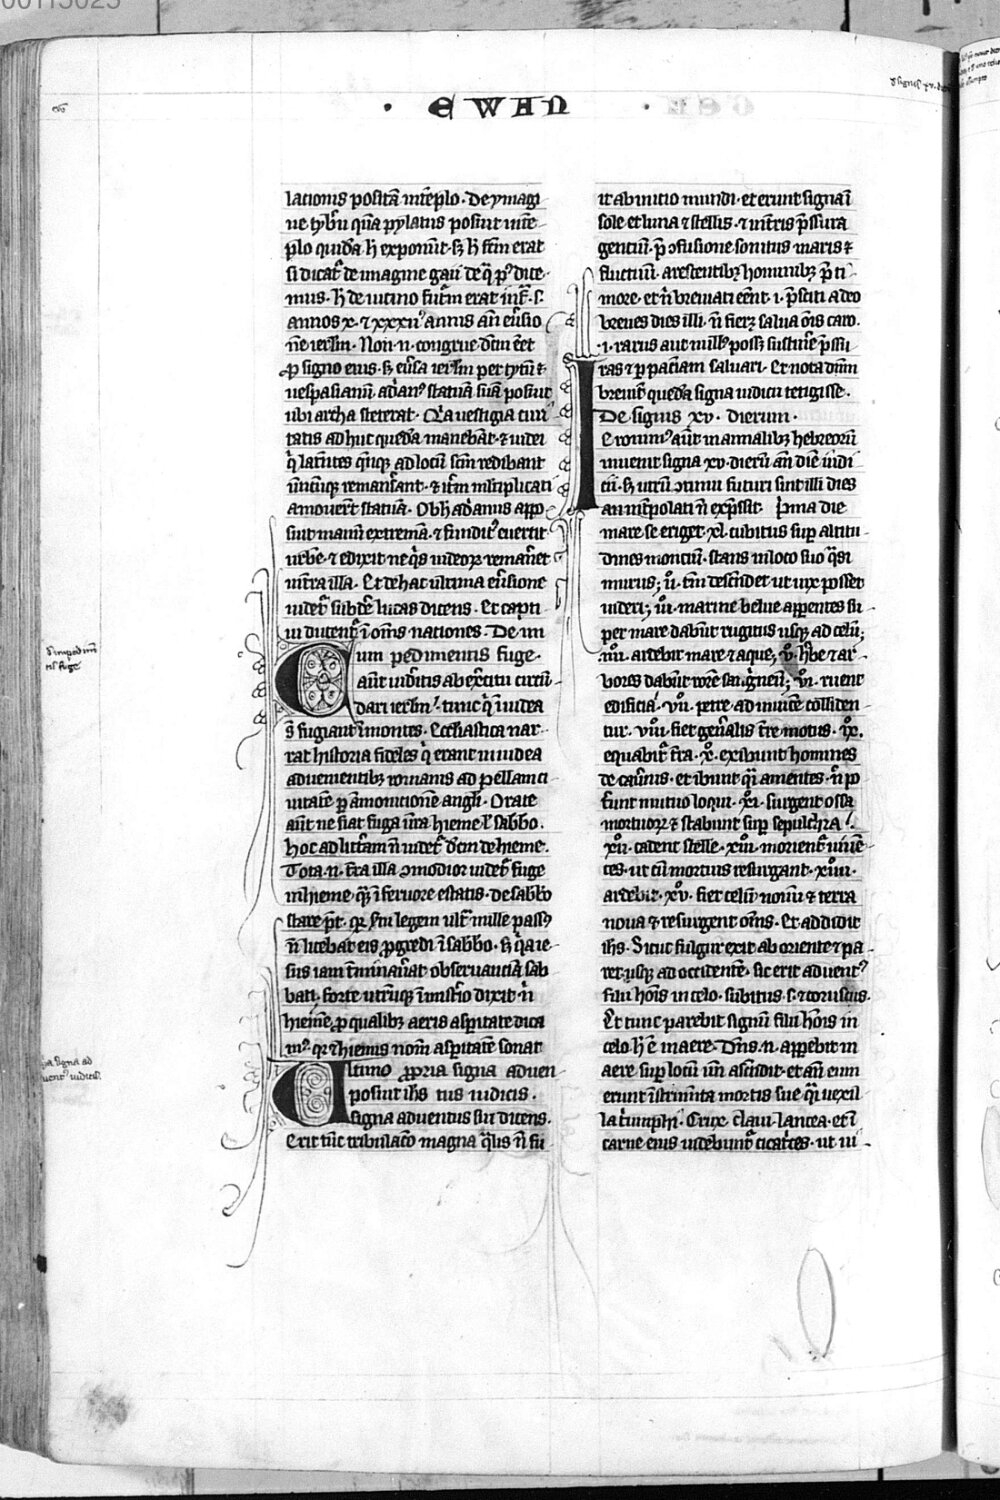 00113023
· EWAN ·
lationis posita in templo. De ymagi
ne tyberii quam pylatus posuit in tem
plo quidam hoc exponunt. sed hoc factum erat
si dicatur de imagine gaii de qua prius dixi
mus. hoc de vicino futurum erat infra .s.
annos x. et xxxii annis ante eversio
nem ierusalem. Non enim congrue dictum esset
pro signo eius. sed eversa ierusalem per tytum et
vespasianum. adrianus statuam suam posuit
ubi archa steterat. Quia vestigia civi
tatis adhuc quedam manebant. et iudei
qui latentes quique ad locum sanctum redibant
amoverent statuam. Ob hoc adrianus appo
suit manum extremam. et funditus evertit
urbem. et edixit ne quis iudeorum remaneret
intra illa. Et de hac ultima eversione
videtur subdere lucas dicens. Et capti
vi ducentur in omnes nationes. De im
pedimentis fuge.
Cum autem videritis ab exercitu circum
dari ierusalem. tunc qui in iudea
sunt fugiant in montes. Ecclesiastica nar
rat historia fideles qui erant in iudea
advenientibus romanis ad pellam ci
vitatem per amonitionem angeli. Orate
autem ne fiat fuga vestra hieme vel sabbato.
Hoc ad litteram non videtur dictum de hieme.
Tota enim terra illa commodior videtur fuge
in hieme. quam in fervore estatis. de sabbato
stare potest. quia secundum legem ultra mille passus
non licebat eis progredi in sabbato. sed quia ie
sus iam terminaverat observantiam sab
bati. forte utrumque in misterio dixit vel
hieme pro qualibet aeris asperitate dica
mus. quia hiemis nomen asperitatem sonat
Ultimo propria signa adven
posuit ihesus tus iudicis.
signa adventus sui dicens.
Erit tunc tribulatio magna qualis non fu
it ab initio mundi. et erunt signa in
sole et luna et stellis. et in terris pressura
gentium. pre confusione sonitus maris et
fluctuum. arescentibus hominibus pre ti
more. et nisi breviati essent .i. presciti adeo
breves dies illi. non fieret salva omnis caro.
.i. rarus aut nullus posset sustinere pressu
ras et per patientiam salvari. Et nota dominum
breviter quedam signa iudicii tetigisse.
De signis xv. dierum.
Ieronimus autem in annalibus hebreorum
invenit signa xv. dierum ante diem iudi
cii. sed utrum continui futuri sint illi dies
an interpolati non expressit. Prima die
mare se eriget. xl. cubitus super altitu
dines montium. stans in loco suo quasi
murus; ii. tantum descendet ut vix posset
videri; iii. marine belue apparentes su
per mare dabunt rugitus usque ad celum;
iiii. ardebit mare et aque; v. herbe et ar
bores dabunt rorem sanguineum; vi. ruent
edificia. vii. petre ad invicem colliden
tur. viii. fiet generalis terre motus. ix.
equabitur terra. x. exibunt homines
de cavernis. et ibunt quasi amentes. nec po
terunt mutuo loqui. xi. surgent ossa
mortuorum et stabunt super sepulchra.
xii. cadent stelle. xiii. morientur viven
tes. ut cum mortuis resurgant. xiiii.
ardebit. xv. fiet celum novum et terra
nova et resurgent omnes. Et addidit
ihesus. Sicut fulgur exit ab oriente et pa
ret usque ad occidentem. sic erit adventus
filii hominis in celo. subitus .s. et coruscus.
Et tunc parebit signum filii hominis in
celo hoc est in aere. Dominus enim apparebit in
aere super locum unde ascendit. et ante eum
erunt instrumenta mortis sue quasi vexil
la triumphi. Crux. clavi. lancea. et in
carne eius videbuntur cicatrices. ut vi